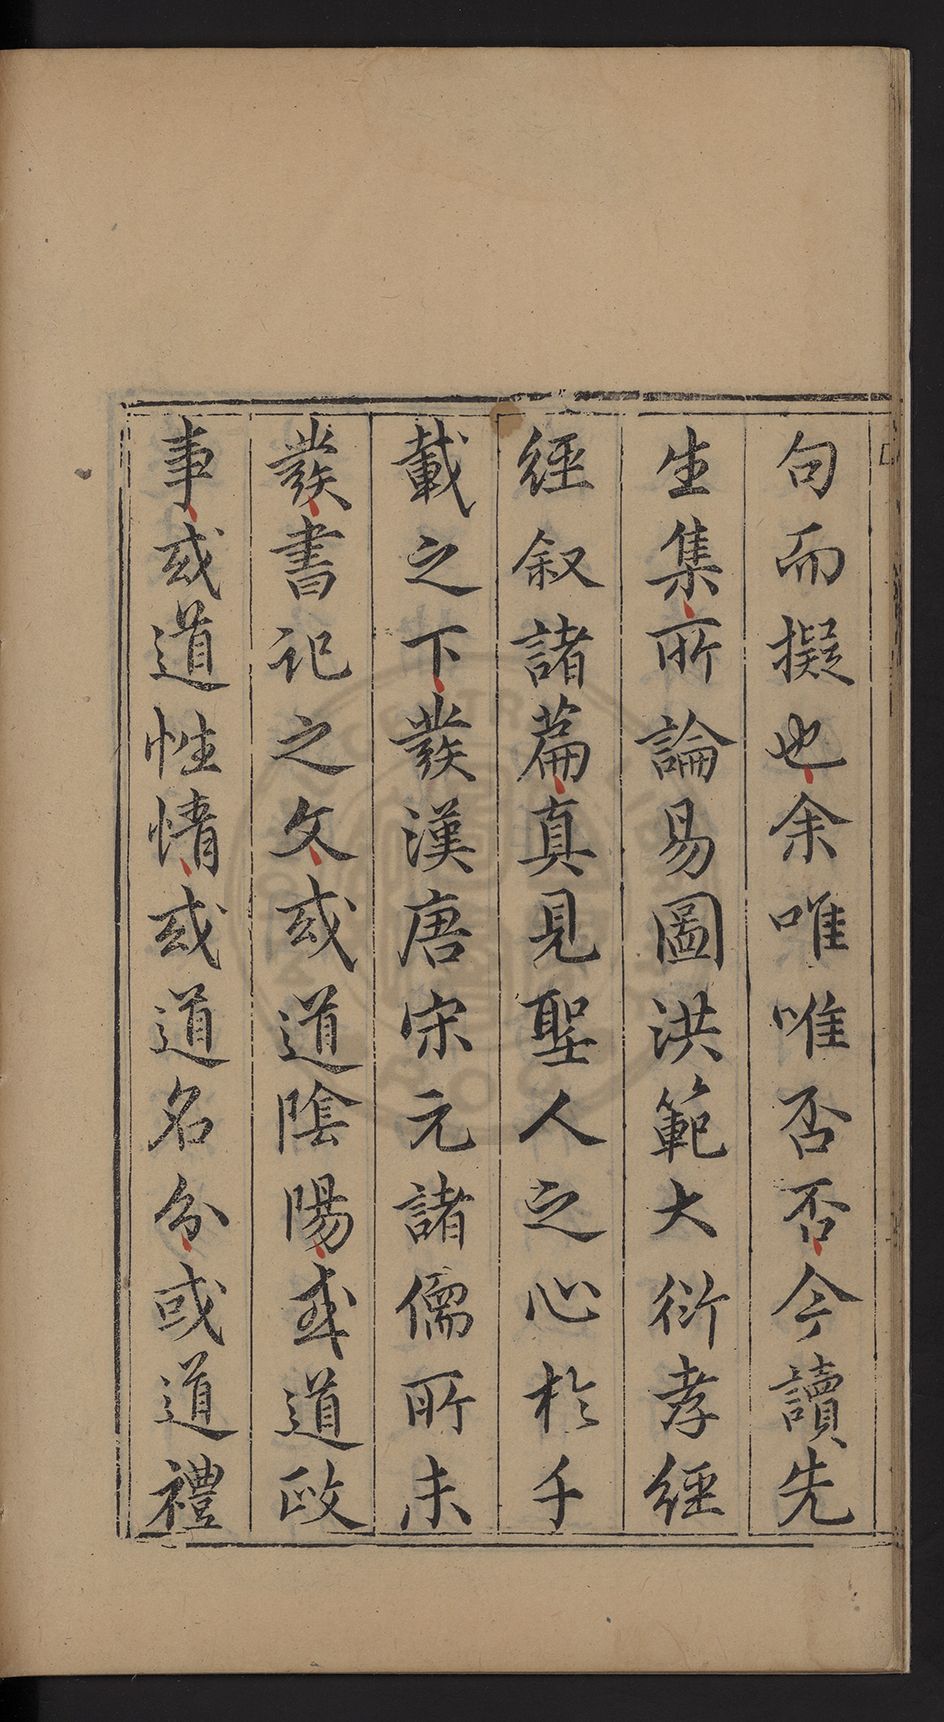 句而擬也余唯唯否否今讀先
生集所論易圖洪範大衍孝經
經叙諸篇真見聖人之心於千
載之下發漢唐宋元諸儒所未
發書記之文或道陰陽或道政
事或道性情或道名分或道禮